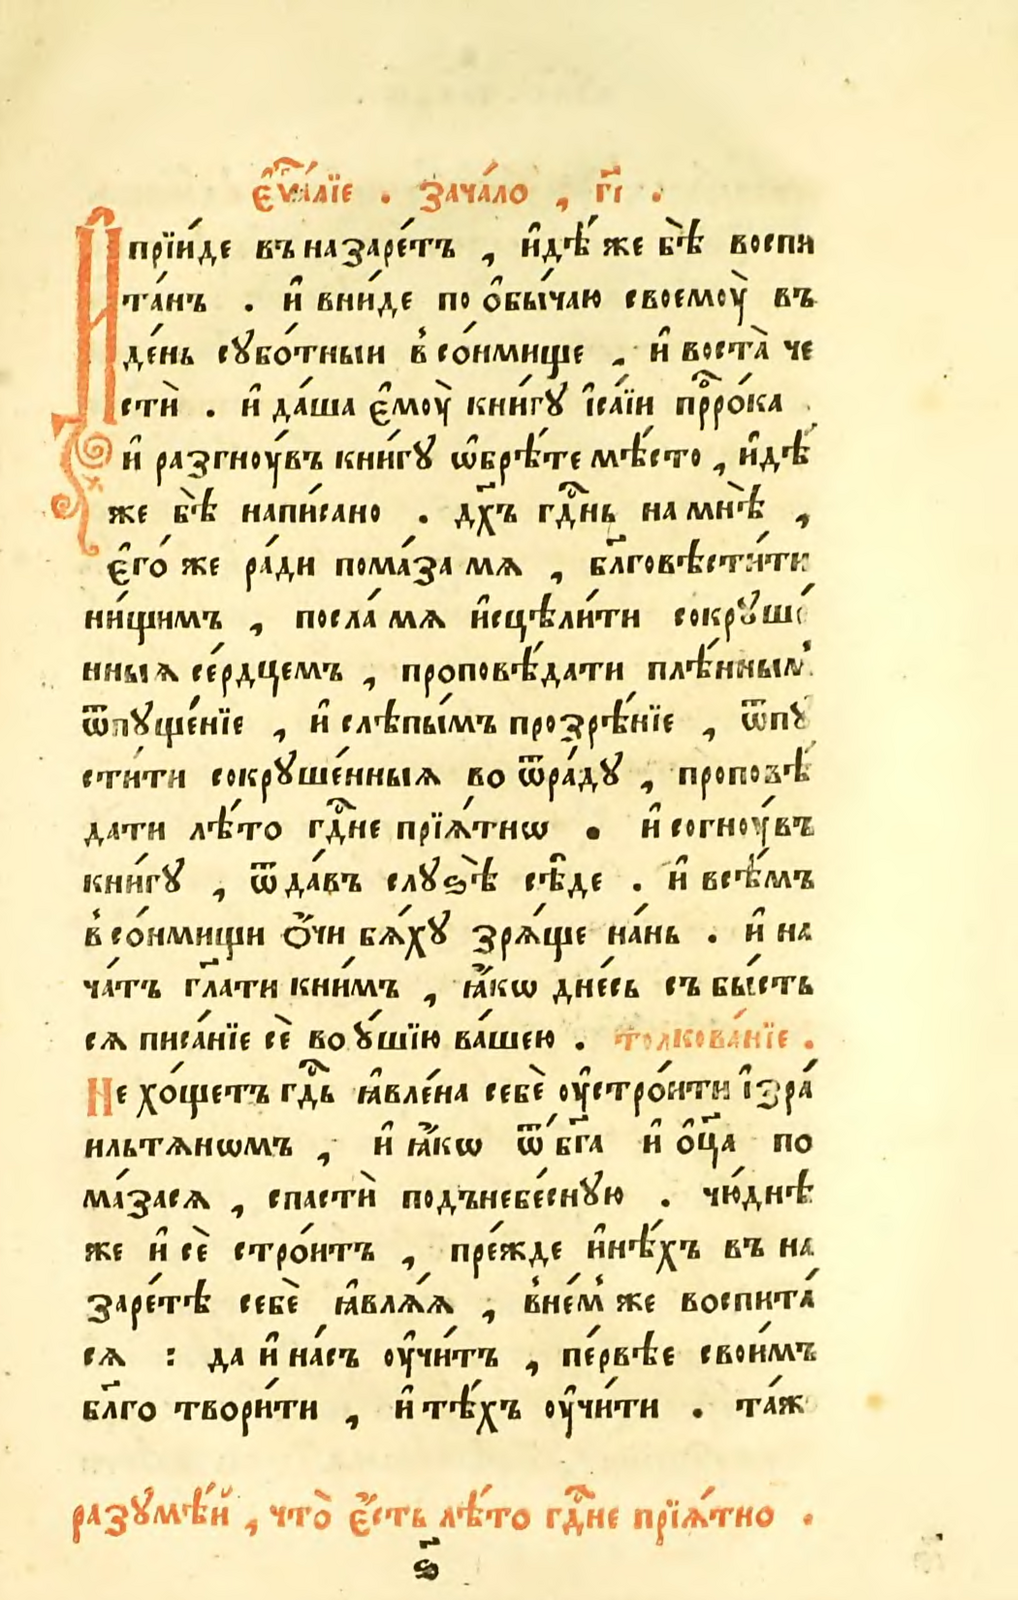 є҆ѵⷢ҇а́лїе . зача́ло , г҃і .
И прїи́де въ назаре́тъ , и҆дѣ́ же бѣ̀ воспи
та́нъ . и҆ вни́де по ѻ҆бы́чаю своемоу̀ въ
де́нь сꙋбо́тныи в̾ со́нмище , и҆ воста̀ че
стѝ . и҆ да́ша є҆моу̀ кни́гꙋ і҆са́їи прⷪ҇ро́ка
и҆ разгноу́въ кни́гꙋ ѡ҆брѣ́те мѣ́сто , и҆дѣ́
же бѣ̀ напи́сано . дх҃ъ гдⷭ҇нь на мнѣ̀ ,
є҆го́ же ра́ди пома́за мѧ , бл҃говѣсти́ти
ни́щимъ , посла́ мѧ и҆сцѣли́ти сокрꙋше́
нныѧ се́рдцемъ , проповѣ́дати плѣ́нным̾
ѿпꙋще́нїе , и҆ слѣпы́мъ прозрѣ́нїе , ѿпꙋ
сти́ти сокрꙋше́нныѧ во ѿра́дꙋ , проповѣ́
дати лѣ́то гдⷭ҇не прїѧ́тнѡ . и҆ согноу́въ
кни́гꙋ , ѿда́въ слꙋзѣ̀ сѣ́де . и҆ всѣ́мъ
в̾ со́нмищи ѻ҆́чи бѧ́хꙋ зрѧ́ще на́нь . и҆ на
ча́тъ гл҃ати кни́мъ , ꙗ҆́кѡ дне́сь съ бы́сть
сѧ писа́нїе сѐ во ꙋ҆́шїю ва́шею . толкова́нїе .
Не хо́щетъ гдⷭ҇ь ꙗ҆вле́на себѐ оу҆стро́ити і҆зра́
ильтѧнѡмъ , и҆ ꙗ҆́кѡ ѿ бг҃а и҆ ѻ҆ц҃а по
ма́засѧ , спастѝ подънебе́снꙋю . чю́днѣ
же и҆ сѐ стро́итъ , пре́жде и҆нѣ́хъ въ на
заре́тѣ себѐ ꙗ҆влѧ́ѧ , в̾не́м̾ же воспита́
сѧ : да и҆ на́съ оу҆чи́тъ , пе́рвѣе свои́мъ
бл҃го твори́ти , и҆ тѣ́хъ оу҆чи́ти . та́ж
разꙋмѣ́й , что̀ є҆́сть лѣ́то гдⷭ҇не прїѧ́тно .
ѕ҃